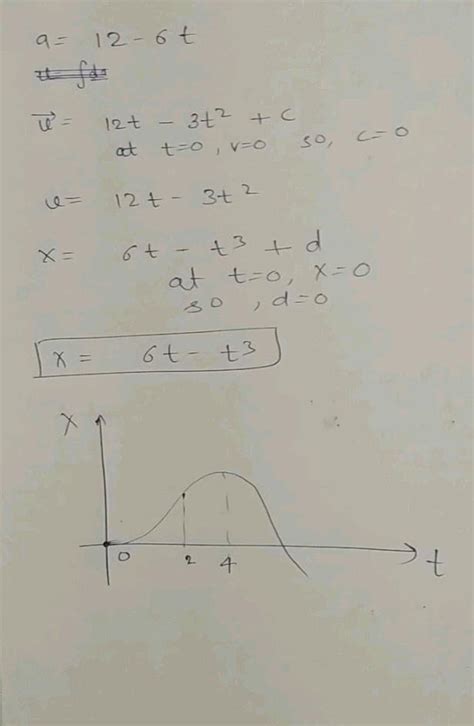 a = 12 - 6t
v⃗ = 12t - 3t² + c
at t=0, v=0 so, c=0
v = 12t - 3t²
x = 6t - t³ + d
at t=0, x=0
so, d=0
x = 6t - t³
x
0 2 4 t